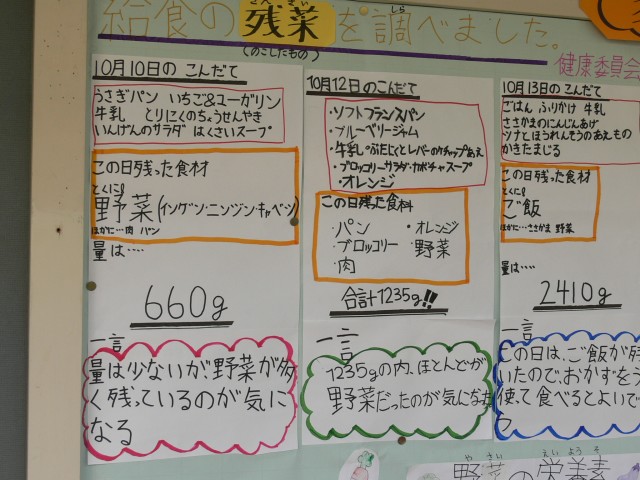 給食の残菜を調べました。
ざんさい
しら
(のこしたもの)
健康委員会
10月10日の こんだて
うさぎパン いちご&ユーガリン
牛乳 とりにくのちょうせんやき
いんげんのサラダ はくさいスープ
この日残った食材
とくに
野菜(インゲン・ニンジン・キャベツ)
ほかに…肉 パン
量は‥‥
660g
一言
量は少ないが、野菜が多
く残っているのが気に
なる
10月12日 のこんだて
・ソフトフランスパン
・ブルーベリージャム
・牛乳・ぶたにくとレバーのケチャップあえ
・ブロッコリーサラダ・カボチャスープ
・オレンジ
この日残った食料
・パン ・オレンジ
・ブロッコリー 野菜
・肉
合計1235g!!
一言
1235gの内、ほとんどが
野菜だったのが気になった
10月13日の こんだて
ごはん ふりかけ 牛乳
ささかまのにんじんあげ
ツナとほうれんそうのあえもの
かきたまじる
この日残った食材
とくに
ご飯
ほかに…ささかま 野菜
量は‥‥
2410g
一言
この日は、ご飯が残
いたので、おかずをう
使って食べるとよいで
う
やさい えいようそ
野菜の栄養素